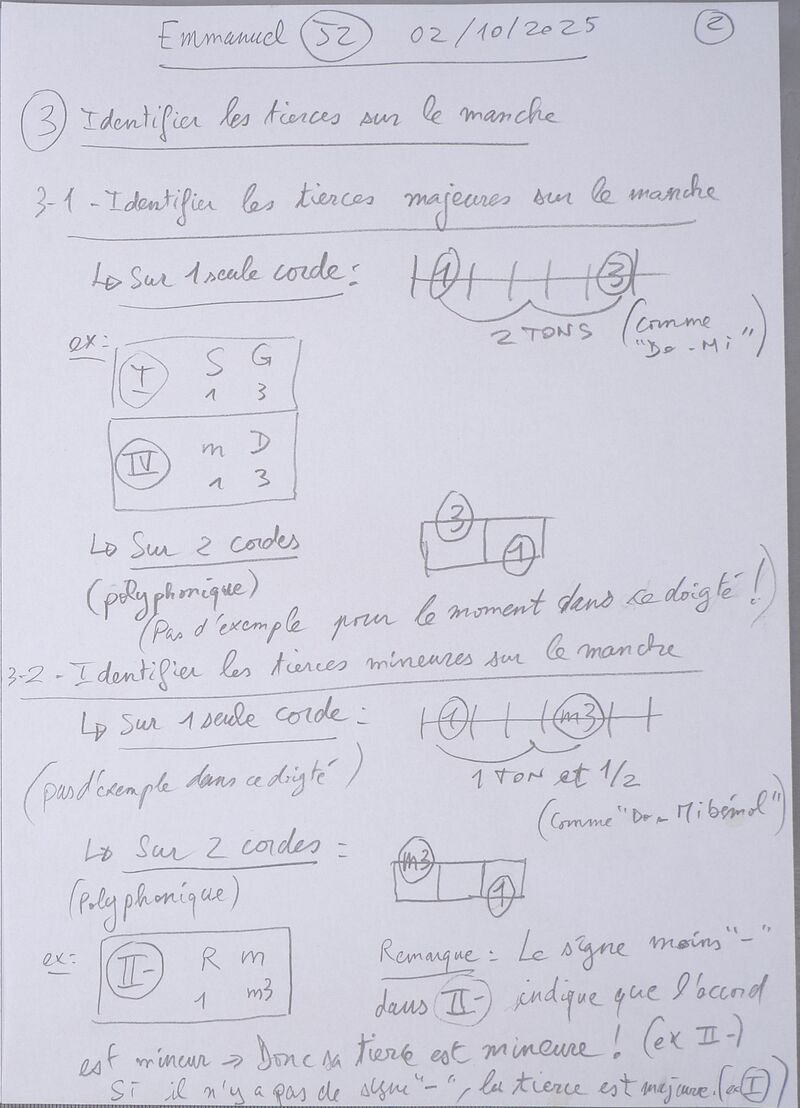 Emmanuel 52 02/10/2025 2
3 Identifier les tierces sur le manche
3-1 - Identifier les tierces majeures sur le manche
↳ Sur 1 seule corde : 1 3
2 TONS (Comme
"Do - Mi")
ex:
I S G
1 3
IV m D
1 3
↳ Sur 2 cordes 3 1
(polyphonique)
(Pas d'exemple pour le moment dans ce doigté !)
3-2 - Identifier les tierces mineures sur le manche
↳ Sur 1 seule corde = 1 m3
(pas d'exemple dans ce doigté) 1 TON et 1/2
(Comme "Do - Mi bémol")
↳ Sur 2 cordes = m3 1
(Polyphonique)
ex: II- R m
1 m3
Remarque = Le signe moins "-"
dans II- indique que l'accord
est mineur ⇒ Donc sa tierce est mineure ! (ex II-)
Si il n'y a pas de signe "-", la tierce est majeure. (ex I)